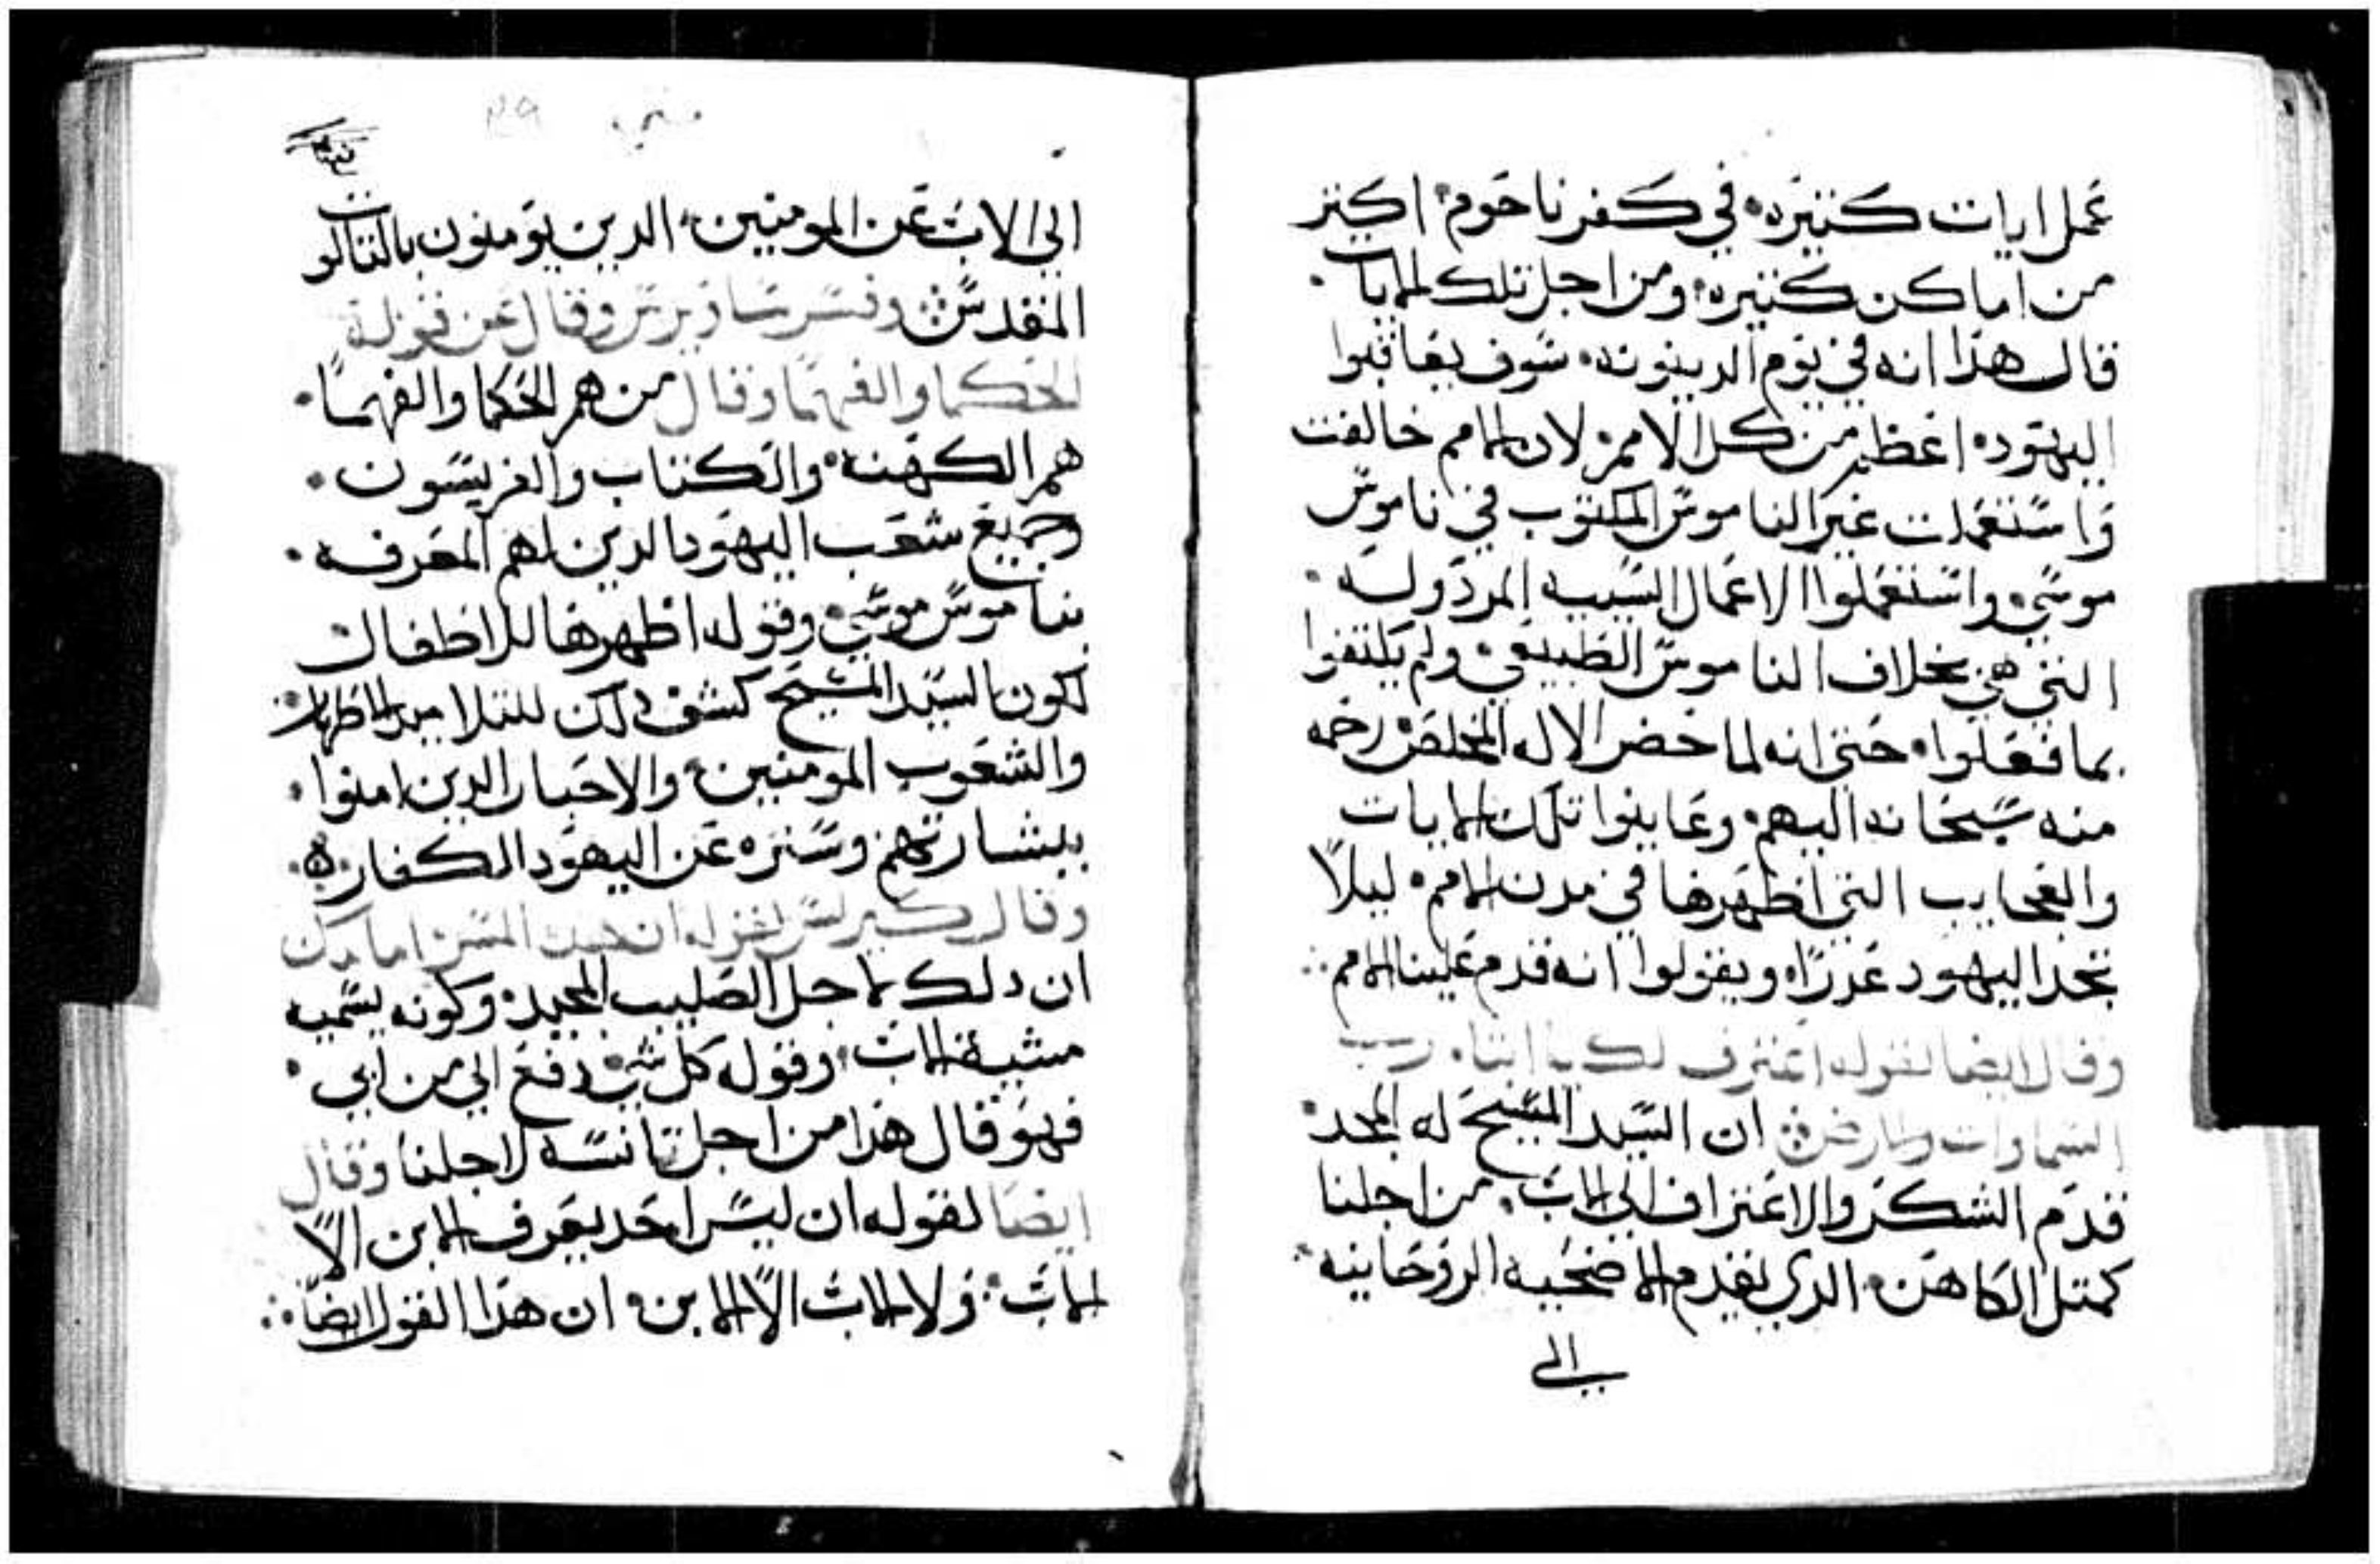 عمل ايات كتيره في كفرناحوم اكتر
من اماكن كتيره ومن اجل تلك الايات
قال هدا انه في يوم الدينونه سوف يعاقبوا
اليهود اعظم من كل الامم لان الامم خالفت
واستعملت غير الناموس المكتوب في ناموس
موسي واستعملوا الاعمال السييه المردوله
التي هي بخلاف الناموس الطبيعي ولم يكتفوا
بما فعلوا حتي انه لما حضر الاله المخلص رحمه
منه سبحانه اليهم وعاينوا تلك الايات
والعجايب التي اظهرها في مدن الامم ليلا
تجد اليهود عدرا ويقولوا انه قدم علينا الامم
وقال ايضا لقوله اعترف لك يا ابتاه رب
السماوات والارض ان السيد المسيح له المجد
قدم الشكر والاعتراف الي الاب من اجلنا
كمتل الكاهن الدي يقدم الاضحيه الروحانيه
الي
متي ٣٩
الي الاب عن المومنين الدين يومنون بالتالوت
المقدس وفسر ساويرس وقال عن قوله
الحكما والفهما وقال من هم الحكما والفهما
هم الكهنه والكتاب والفريسون
وجميع شعب اليهود الدين لهم المعرفه
بناموس موسي وقوله اظهرها للاطفال
لكون السيد المسيح كشف دلك للتلاميد الاطهار
والشعوب المومنين والاحبار الدين امنوا
ببشارتهم وستره عن اليهود الكفار
وقال كيرلس لقوله ان المسن امامك
ان دلك لاجل الصليب المجيد وكونه يسميه
مشية الاب وقوله كل شي دفع الي من ابي
فهو قال هدا من اجل تانسه لاجلنا وقال
ايضا لقوله ان ليس احد يعرف الابن الا
الاب ولا الاب الا الابن ان هدا القول ايضا